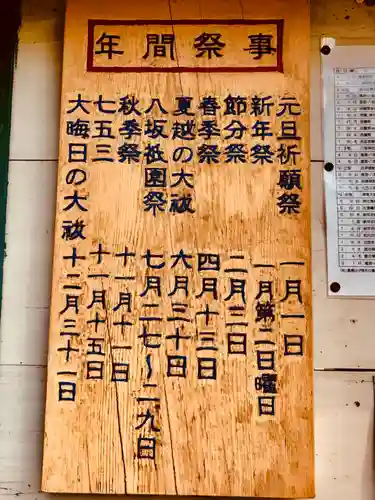 年間祭事
元旦祈願祭 一月一日
新年祭 一月第二日曜日
節分祭 二月三日
春季祭 四月十三日
夏越の大祓 六月三十日
八坂祇園祭 七月二七〜二九日
秋季祭 十一月十一日
七五三 十一月十五日
大晦日の大祓 十二月三十一日